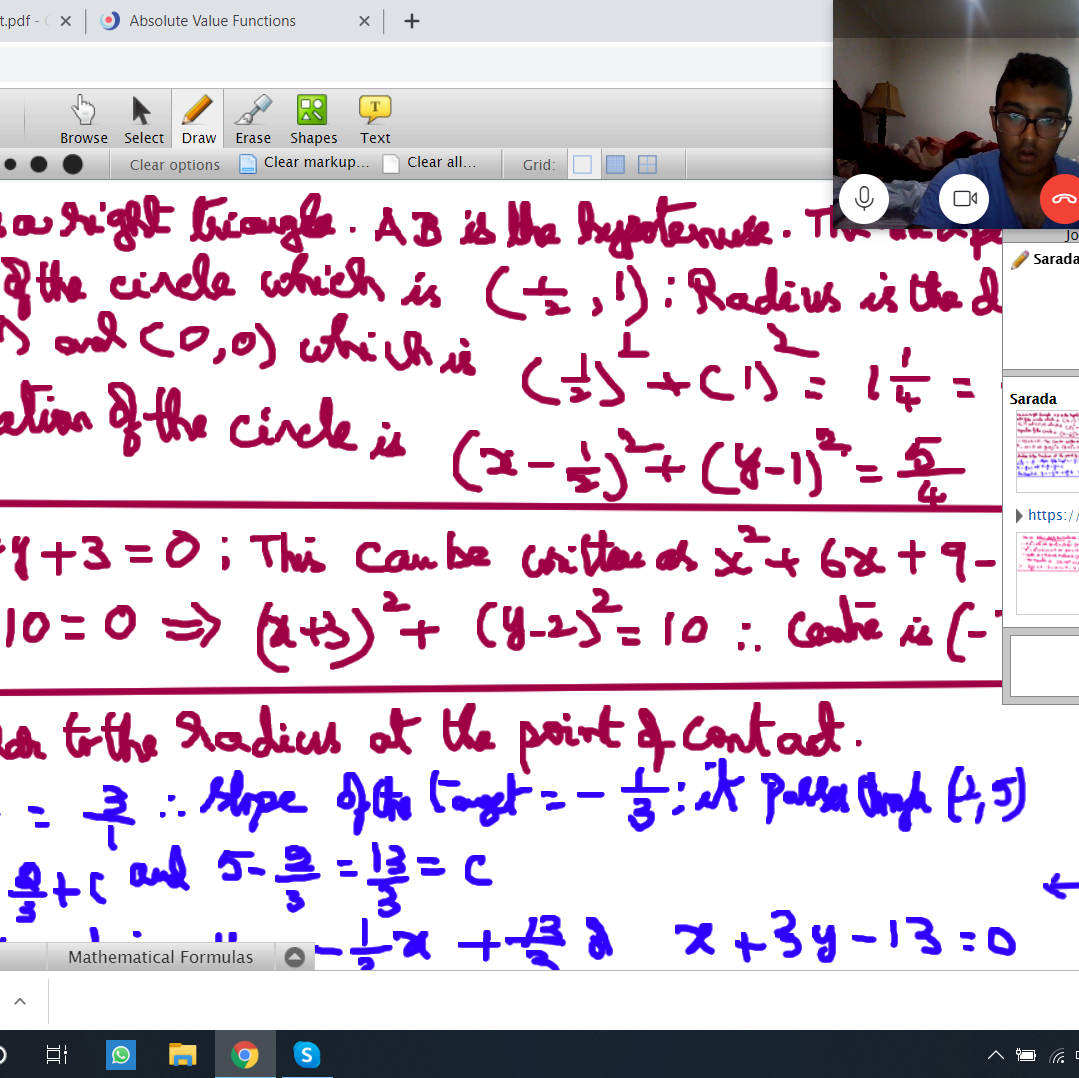 t.pdf -
Absolute Value Functions
Browse Select Draw Erase Shapes Text
Clear options Clear markup... Clear all... Grid:
Jo
Sarada
Sarada
https://
a right triangle. AB is the hypotenuse. The
of the circle which is (1/2, 1) ; Radius is the d
) and (0,0) which is (1/2)² + (1)² = 1 1/4 =
ation of the circle is (x - 1/2)² + (y-1)² = 5/4
y + 3 = 0 ; This can be written as x² + 6x + 9 -
10 = 0 ⇒ (x+3)² + (y-2)² = 10 ∴ Centre is (-
to the radius at the point of contact.
= 3/1 ∴ slope of the tanget = - 1/3 ; it passes through (-2, 5)
/3 + c and 5 - 2/3 = 13/3 = c
←
- 1/3 x + 13/3 x + 3y - 13 = 0
Mathematical Formulas